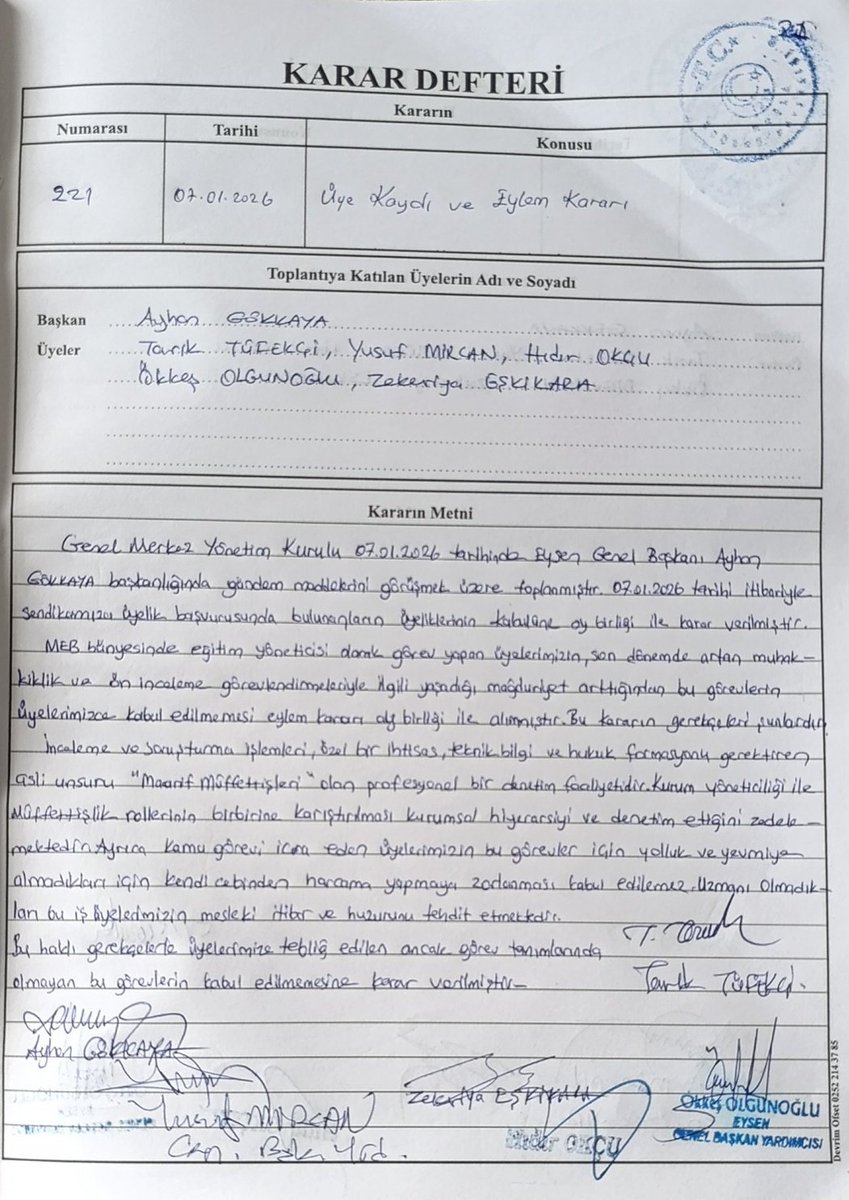 21
T.C.
KARAR DEFTERİ
Kararın
Numarası Tarihi Konusu
221 07.01.2026 Üye Kaydı ve Eylem Kararı
Toplantıya Katılan Üyelerin Adı ve Soyadı
Başkan Ayhan GÖKKAYA
Üyeler Tarık TÜFEKÇİ, Yusuf MİRCAN, Hıdır OKÇU
Ökkeş OLGUNOĞLU, Zekeriya EŞKİKARA
Kararın Metni
Genel Merkez Yönetim Kurulu 07.01.2026 tarihinde Eysen Genel Başkanı Ayhan
GÖKKAYA başkanlığında gündem maddelerini görüşmek üzere toplanmıştır. 07.01.2026 tarihi itibariyle
sendikamıza üyelik başvurusunda bulunanların üyeliklerinin kabulüne oy birliği ile karar verilmiştir.
MEB bünyesinde eğitim yöneticisi olarak görev yapan üyelerimizin, son dönemde artan muhak-
kiklik ve ön inceleme görevlendirmeleriyle ilgili yaşadığı mağduriyet arttığından bu görevlerin
üyelerimizce kabul edilmemesi eylem kararı oy birliği ile alınmıştır. Bu kararın gerekçeleri şunlardır.
İnceleme ve soruşturma işlemleri, özel bir ihtisas, teknik bilgi ve hukuk formasyonu gerektiren
asli unsuru "Maarif Müffettişleri" olan profesyonel bir denetim faaliyetidir. Kurum yöneticiliği ile
Müffettişlik rollerinin birbirine karıştırılması kurumsal hiyerarşiyi ve denetim etiğini zedele-
mektedir. Ayrıca kamu görevi icra eden üyelerimizin bu görevler için yolluk ve yevmiye
almadıkları için kendi cebinden harcama yapmaya zorlanması kabul edilemez. Uzmanı olmadık-
ları bu iş üyelerimizin mesleki itibar ve huzurunu tehdit etmektedir.
Bu haklı gerekçelerle üyelerimize tebliğ edilen ancak görev tanımlarında
olmayan bu görevlerin kabul edilmemesine karar verilmiştir.
Tarık TÜFEKÇİ.
Ayhan GÖKKAYA
Yusuf MİRCAN
Gen. Bşk. Yrd.
Zekeriya EŞKİKARA
Hıdır OKÇU
Ökkeş OLGUNOĞLU
EYSEN
GENEL BAŞKAN YARDIMCISI
Devrim Ofset 0252 214 37 85